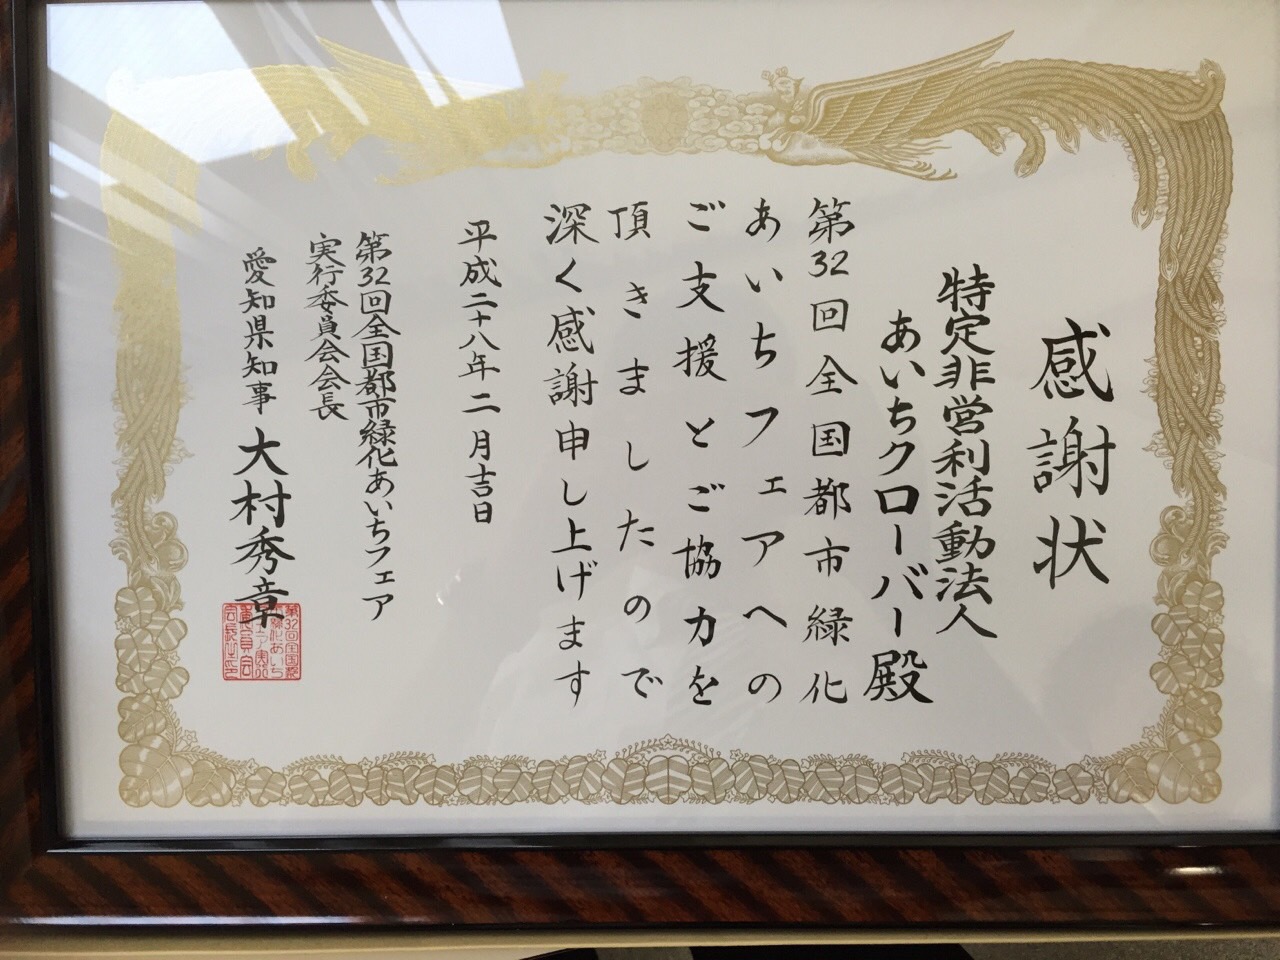 感謝状
特定非営利活動法人
あいちクローバー殿
第32回全国都市緑化
あいちフェアへの
ご支援とご協力を
頂きましたので
深く感謝申し上げます
平成二十八年二月吉日
第32回全国都市緑化あいちフェア
実行委員会会長
愛知県知事 大村秀章